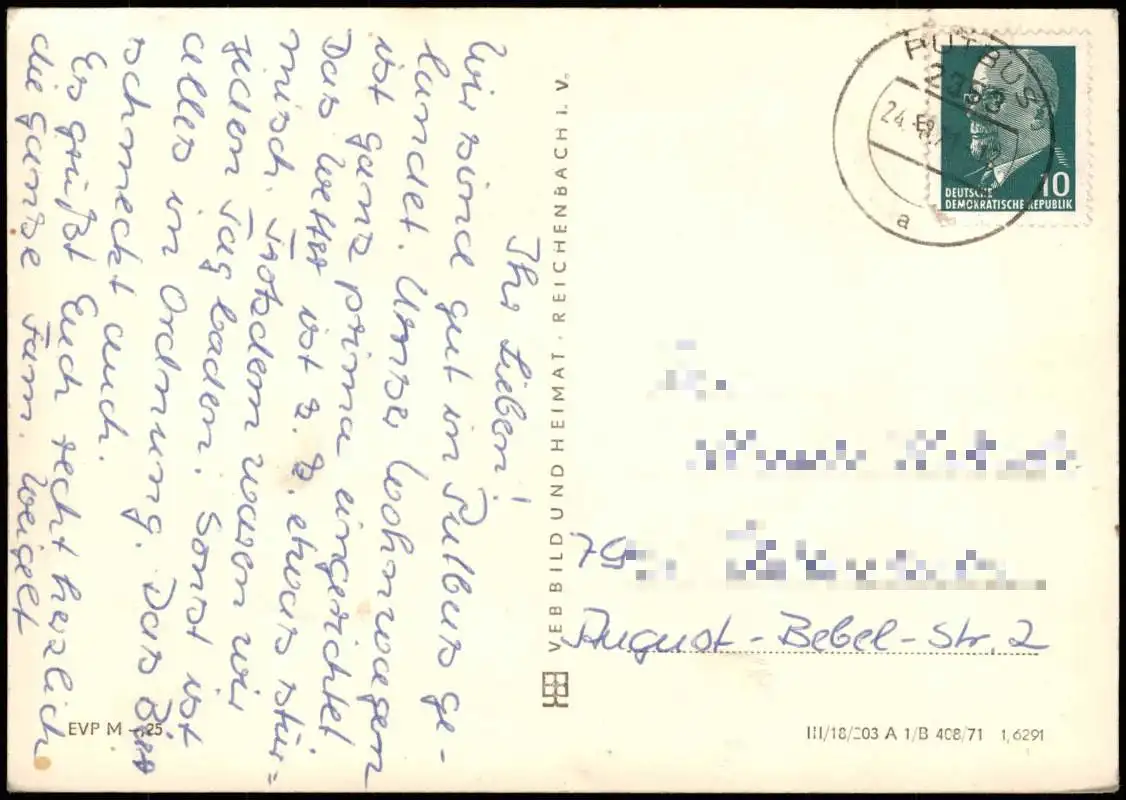 Ihr Lieben!
Wir sind gut in Putbus ge-
landet. Unser Wohnwagen
ist ganz prima eingerichtet
Das Wetter ist z. Z. etwas stür=
misch. Trotzdem waren wir
jeden Tag baden. Sonst ist
alles in Ordnung. Das Bier
schmeckt auch.
Es grüßt Euch recht herzlich
die ganze Fam. Weigelt
VEB BILD UND HEIMAT · REICHENBACH I. V.
PUTBUS
2353
24.
a
10
DEUTSCHE
DEMOKRATISCHE REPUBLIK
79
August-Bebel-Str. 2
EVP M -,25
III/18/203 A 1/B 408/71 1,6291